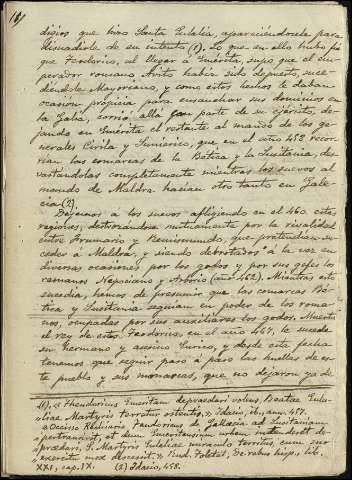 161
digios que hizo Santa Eulalia, apareciéndosele para
disuadirle de su intento (1). Lo que en ello hubo fué
que Teodorico, al llegar á Emérita, supo que el em-
perador romano, Avito había sido depuesto suce-
diéndole Mayoriano, y como estos hechos le daban
ocasion propicia para ensanchar sus dominios en
la Galia, corrió allá con parte de su ejército, de-
jando en Emérita el restante al mando de los ge-
nerales Cirila y Sunierico, que en el año 458 recor-
rian las comarcas de la Bética y la Lusitania, des-
vastandolas completamente mientras los suevos al
mando de Maldra hacian otro tanto en Gale-
cia (2).
Dejemos a los suevos afligiendo en el 460 estas
regiones, destrozándose mutuamente por la rivalidad
entre Frumario y Remismundo, que pretendian su-
ceder á Maldra, y siendo derrotados á la vez en
diversas ocasiones por los godos y por sus gefes los
romanos Nepociano y Arborio (año 462). Mientras esto
sucedia, hemos de presumir que las comarcas Bé-
tica y Lusitania seguian en poder de los roma-
nos, ocupadas por sus auxiliares los godos. Muerto
el rey de estos, Teodorico, en el año 467, le sucede
su hermano y asesino Eurico, y desde esta fecha
tenemos que seguir paso á paso las huellas de es-
te pueblo y sus monarcas, que no dejaron ya de
(1). «Theudoricus Emeritam depraedari volens, Beatae Eula-
liae Martyris terretur ostentis.» Idacio, ib., ann. 457.
«Occiso Rechiario Teudoricus de Gallaecia ad Lusitaniam
pertransivit, et dum Emeritensium urbem intenderet de-
praedari, S. Martyris Eulaliae miraculo territus, cum suo
exercitu mox discessit.» Rod. Toletat. De rebus hisp., lib.
XXI, cap. IX. (2) Idacio, 458.